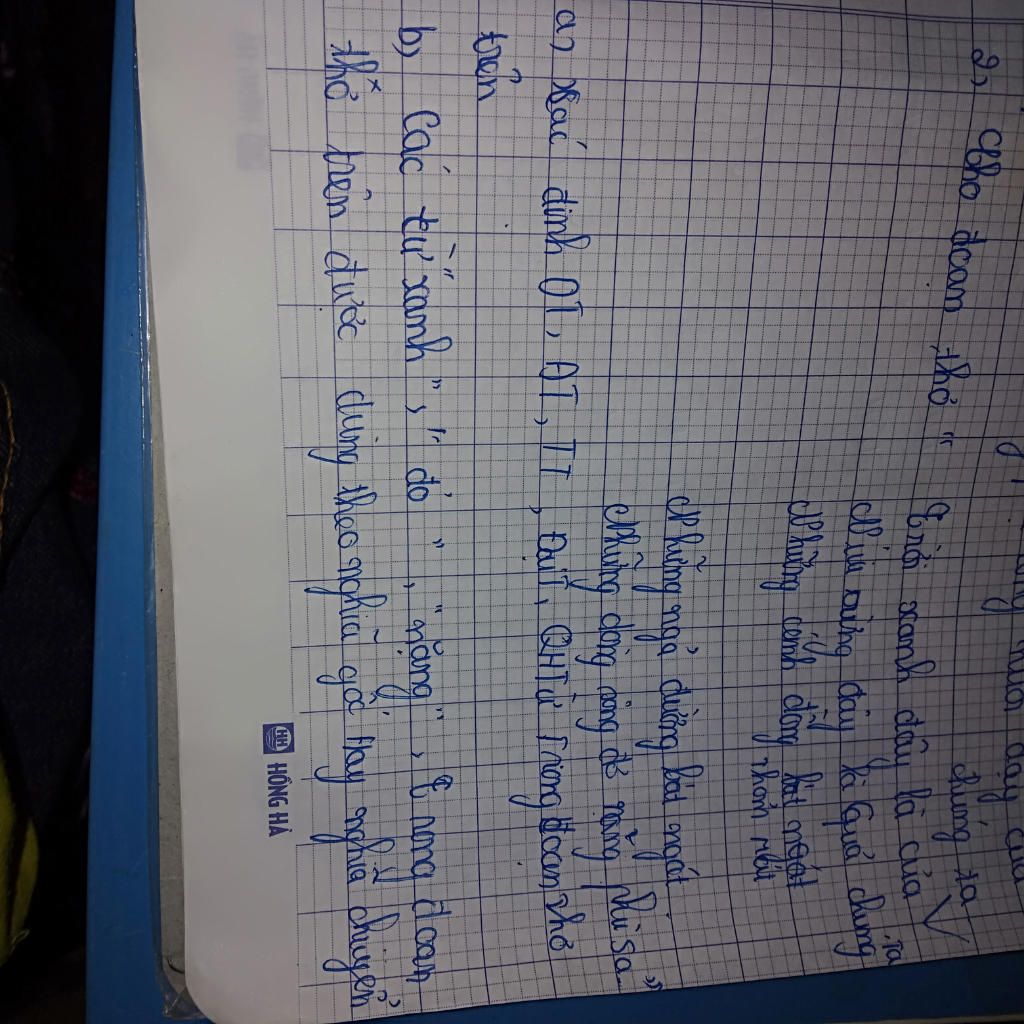 2, Cho đoạn thơ "
Trời xanh đây là của
chúng ta
Núi rừng đây là của chúng
ta
Những cánh đồng bát ngát
thơm mát
Những ngả đường bát ngát
Những dòng sông đỏ nặng phù sa"
a, Xác định DT, ĐT, TT, ĐaiT, QHTừ Trong đoạn thơ
trên
b, Các từ "xanh", "đỏ", "nặng", Trong đoạn
thơ trên được dùng theo nghĩa gốc hay nghĩa chuyển
HỒNG HÀ